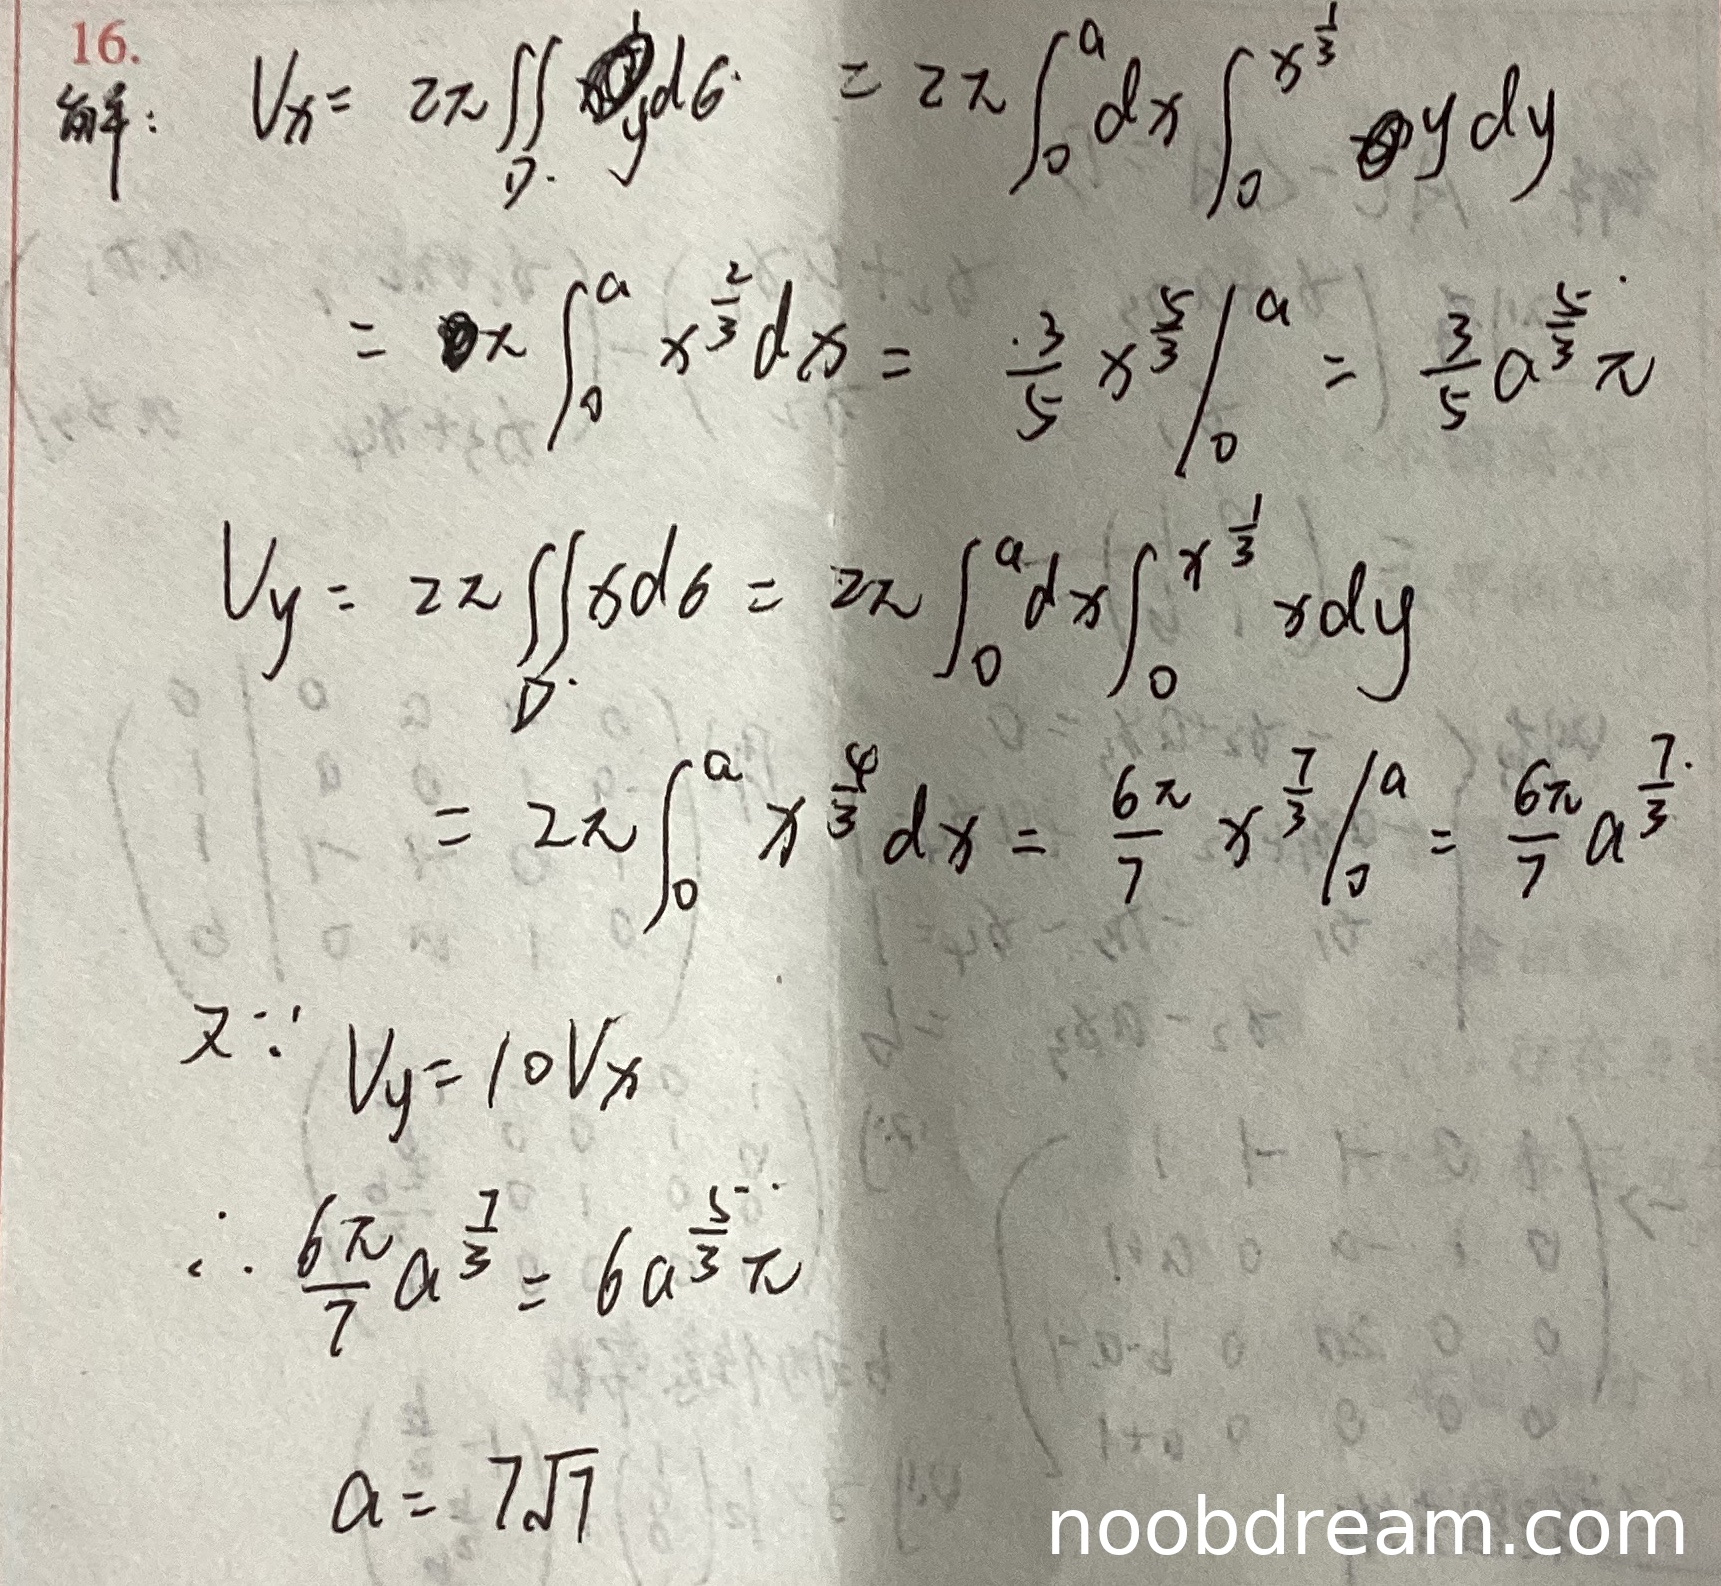 16.
解: Vx = 2π∬_D y dσ = 2π∫_0^a dx ∫_0^{x^{1/3}} y dy
= π∫_0^a x^{2/3} dx = 3/5 x^{5/3} |_0^a = 3/5 a^{5/3} π
Vy = 2π∬_D x dσ = 2π∫_0^a dx ∫_0^{x^{1/3}} x dy
= 2π∫_0^a x^{4/3} dx = 6π/7 x^{7/3} |_0^a = 6π/7 a^{7/3}
又∵ Vy = 10Vx
∴ 6π/7 a^{7/3} = 6a^{5/3} π
a = 7√7
noobdream.com